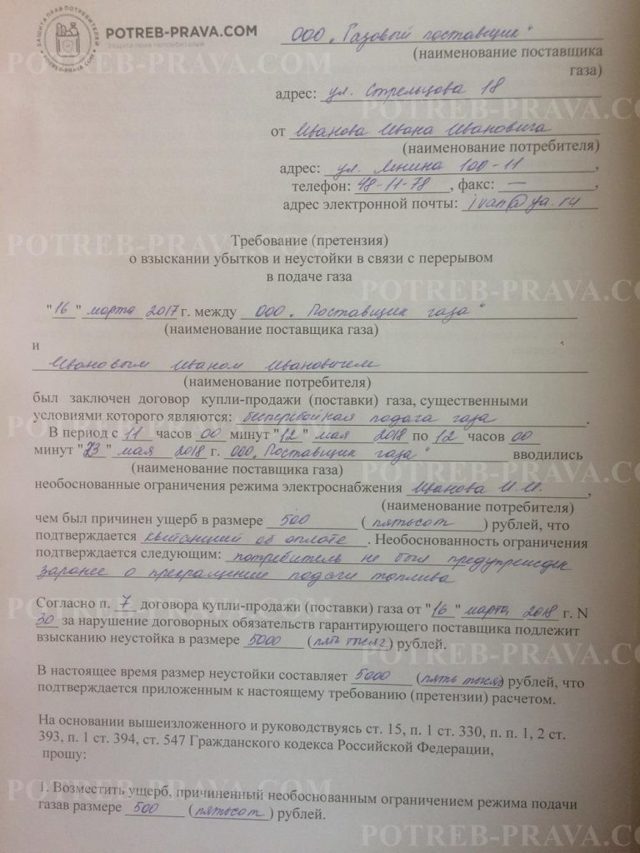 ЗАЩИТА ПРАВ ПОТРЕБИТЕЛЕЙ
POTREB-PRAVA.COM
POTREB-PRAVA.COM
ЗАЩИТА ПРАВ ПОТРЕБИТЕЛЕЙ
ООО „Газовый поставщик"
(наименование поставщика
газа)
адрес: ул. Стрельцова 18
от Иванова Ивана Ивановича
(наименование потребителя)
адрес: ул. Ленина 100-11,
телефон: 48-11-78, факс: —,
адрес электронной почты: ivan@ya.ru
Требование (претензия)
о взыскании убытков и неустойки в связи с перерывом
в подаче газа
"16" марта 2017 г. между ООО „Поставщик газа"
(наименование поставщика газа)
и
Ивановым Иваном Ивановичем
(наименование потребителя)
был заключен договор купли-продажи (поставки) газа, существенными
условиями которого являются: бесперебойная подача газа.
В период с 11 часов 00 минут "12" мая 2018 по 12 часов 00
минут "23" мая 2018 г. ООО „Поставщик газа" вводились
(наименование поставщика газа)
необоснованные ограничения режима электроснабжения Иванова И.И.,
(наименование потребителя)
чем был причинен ущерб в размере 500 (пятьсот) рублей, что
подтверждается квитанцией об оплате. Необоснованность ограничения
подтверждается следующим: потребитель не был предупрежден
заранее о прекращении подачи топлива
Согласно п. 7 договора купли-продажи (поставки) газа от "16" марта 2018 г. N
30 за нарушение договорных обязательств гарантирующего поставщика подлежит
взысканию неустойка в размере 5000 (пять тысяч) рублей.
В настоящее время размер неустойки составляет 5000 (пять тысяч) рублей, что
подтверждается приложенным к настоящему требованию (претензии) расчетом.
На основании вышеизложенного и руководствуясь ст. 15, п. 1 ст. 330, п. п. 1, 2 ст.
393, п. 1 ст. 394, ст. 547 Гражданского кодекса Российской Федерации,
прошу:
1. Возместить ущерб, причиненный необоснованным ограничением режима подачи
газав размере 500 (пятьсот) рублей.